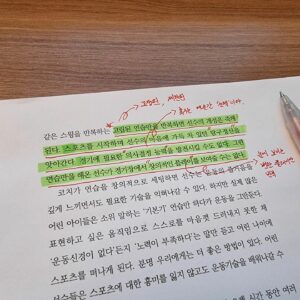 같은 스윙을 반복하는 고립된 연습만을 반복하면 선수의 개성은 죽게
된다. 스포츠를 시작하며 선수의 마음에 가득 차 있던 탐구정신을
앗아간다. 경기에 필요한 의사결정 능력을 발전시킬 수도 없다. 그런
연습만을 해온 선수가 경기장에서 창의적인 플레이를 보여줄 수는 없다.
코치가 연습을 창의적으로 세팅하면 선수는 운동의 즐거움을
깊게 느끼면서도 필요한 기술을 익혀나갈 수 있다. 하지만 실제 많은
어린 아이들은 소위 말하는 '기본기' 연습만 하다가 운동을 그만둔다.
표현하고 싶은 움직임으로 스스로를 마음껏 드러내지 못한 채
'운동신경이 없다'든지 '노력이 부족하다'는 말만 듣고 어린 나이에
스포츠를 떠나게 된다. 분명 우리에게는 더 좋은 방법이 있다. 어린
선수들은 스포츠에 대한 흥미를 잃지 않고도 운동기술을 배워나갈 수